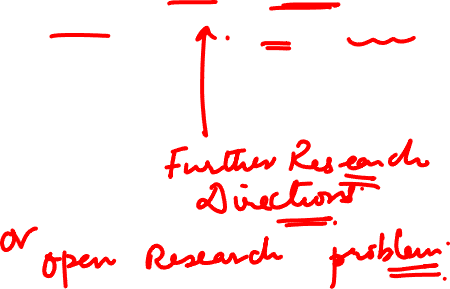 Further Research
Directions.
or open Research problem.